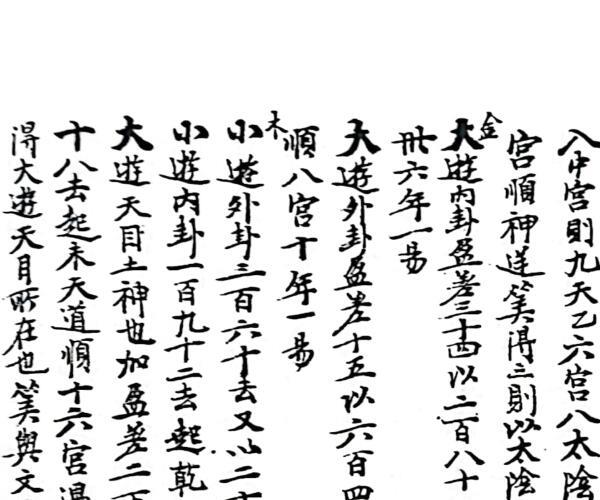 入中宮則九天乙六宮八太陰
宮順神逆筭淂三則以太陰
金
大遊內卦盈差三十四以二百八十
卅六年一易
大遊外卦盈差十五以六百四
順八宮十年一易
木
小遊外卦三百六十去又以二十
小遊內卦一百九十二去起乾
大遊天目土神也加盈差二百
十八去起未天道順十六宮
淂大遊天目所在也筭與文